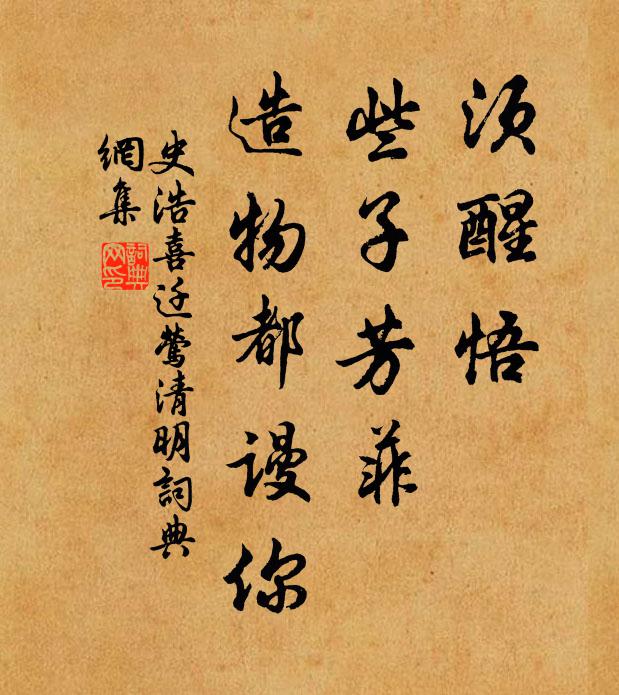 须醒悟
些子芳菲
造物都谩你
史浩喜迁莺清明詞典
網集
詞典
网印